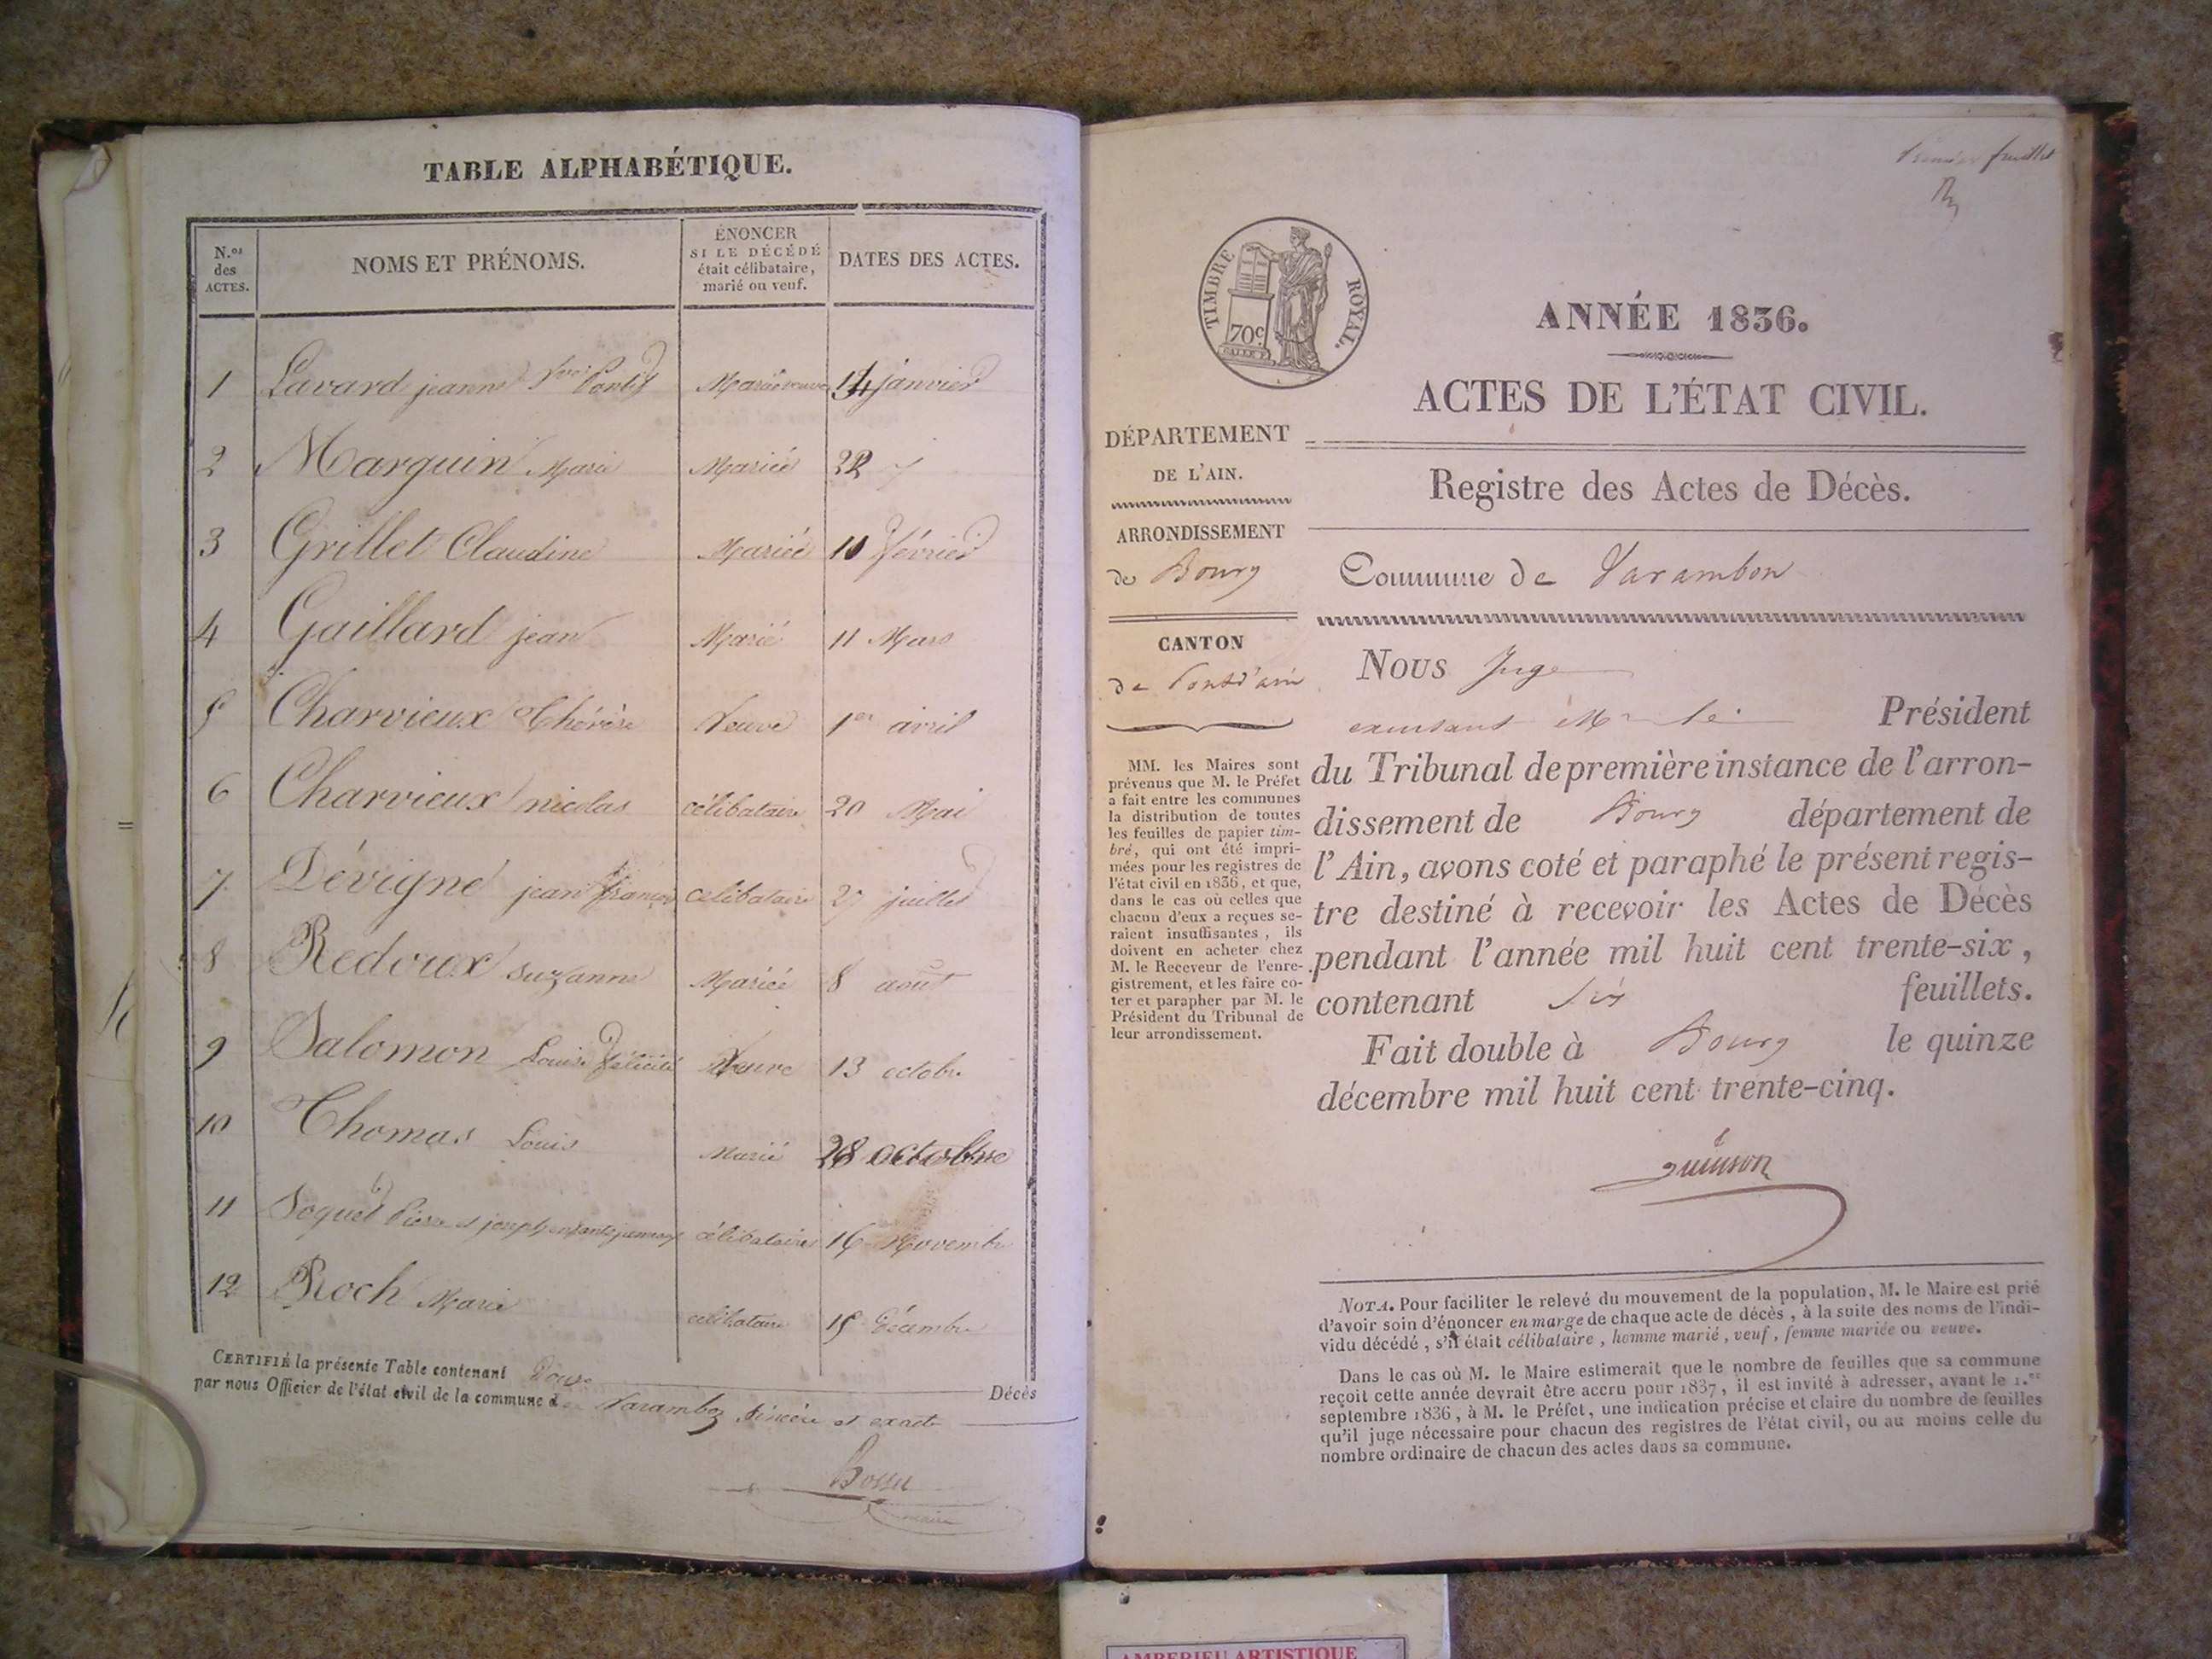 TABLE ALPHABÉTIQUE.
N.os des ACTES.
NOMS ET PRÉNOMS.
ÉNONCER
SI LE DÉCÉDÉ
était célibataire,
marié ou veuf.
DATES DES ACTES.
1 Lavard jeanne 14 janvier
2 Marguin Marie Mariée 22
3 Grillet Claudine Mariée 10 février
4 Gaillard jean Marié 11 Mars
5 Charvieux Thérèse Veuve 1er avril
6 Charvieux nicolas célibataire 20 Mai
7 Dévigne jean françois célibataire 27 juillet
8 Redoux suzanne Mariée 8 août
9 Salomon Louise félicité Veuve 13 octobre
10 Thomas Louis Marié 28 octobre
11 Soquet Pierre et joseph enfants jumeaux célibataires 16 Novembre
12 Roch Marie célibataire 15 Décembre
CERTIFIÉ la présente Table contenant Douze Décès
par nous Officier de l'état civil de la commune de Varambon sincère et exacte
Bossu
maire
Premier feuillet
TIMBRE ROYAL.
70c
ANNÉE 1836.
ACTES DE L'ÉTAT CIVIL.
DÉPARTEMENT
DE L'AIN.
Registre des Actes de Décès.
ARRONDISSEMENT
de Bourg
Commune de Varambon
CANTON
de Pont d'ain
MM. les Maires sont
prévenus que M. le Préfet
a fait entre les communes
la distribution de toutes
les feuilles de papier tim-
bré, qui ont été impri-
mées pour les registres de
l'état civil en 1836, et que,
dans le cas où celles que
chacun d'eux a reçues se-
raient insuffisantes, ils
doivent en acheter chez
M. le Receveur de l'enre-
gistrement, et les faire co-
ter et parapher par M. le
Président du Tribunal de
leur arrondissement.
Nous Juge
Mr le Président
du Tribunal de première instance de l'arron-
dissement de Bourg département de
l'Ain, avons coté et paraphé le présent regis-
tre destiné à recevoir les Actes de Décès
pendant l'année mil huit cent trente-six,
contenant six feuillets.
Fait double à Bourg le quinze
décembre mil huit cent trente-cinq.
NOTA. Pour faciliter le relevé du mouvement de la population, M. le Maire est prié
d'avoir soin d'énoncer en marge de chaque acte de décès, à la suite des noms de l'indi-
vidu décédé, s'il était célibataire, homme marié, veuf, femme mariée ou veuve.
Dans le cas où M. le Maire estimerait que le nombre de feuilles que sa commune
reçoit cette année devrait être accru pour 1837, il est invité à adresser, avant le 1.er
septembre 1836, à M. le Préfet, une indication précise et claire du nombre de feuilles
qu'il juge nécessaire pour chacun des registres de l'état civil, ou au moins celle du
nombre ordinaire de chacun des actes dans sa commune.
AMBERIEU ARTISTIQUE